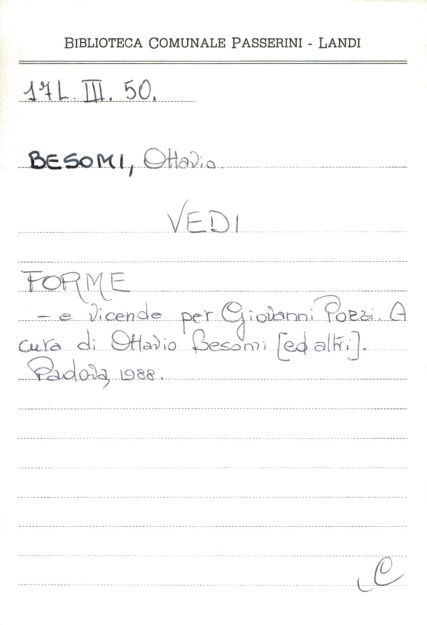 BIBLIOTECA COMUNALE PASSERINI - LANDI
17L. III. 50.
BESOMI, Ottavio.
VEDI
FORME
- e vicende per Giovanni Pozzi. A
cura di Ottavio Besomi [ed altri].
Padova, 1988.
C